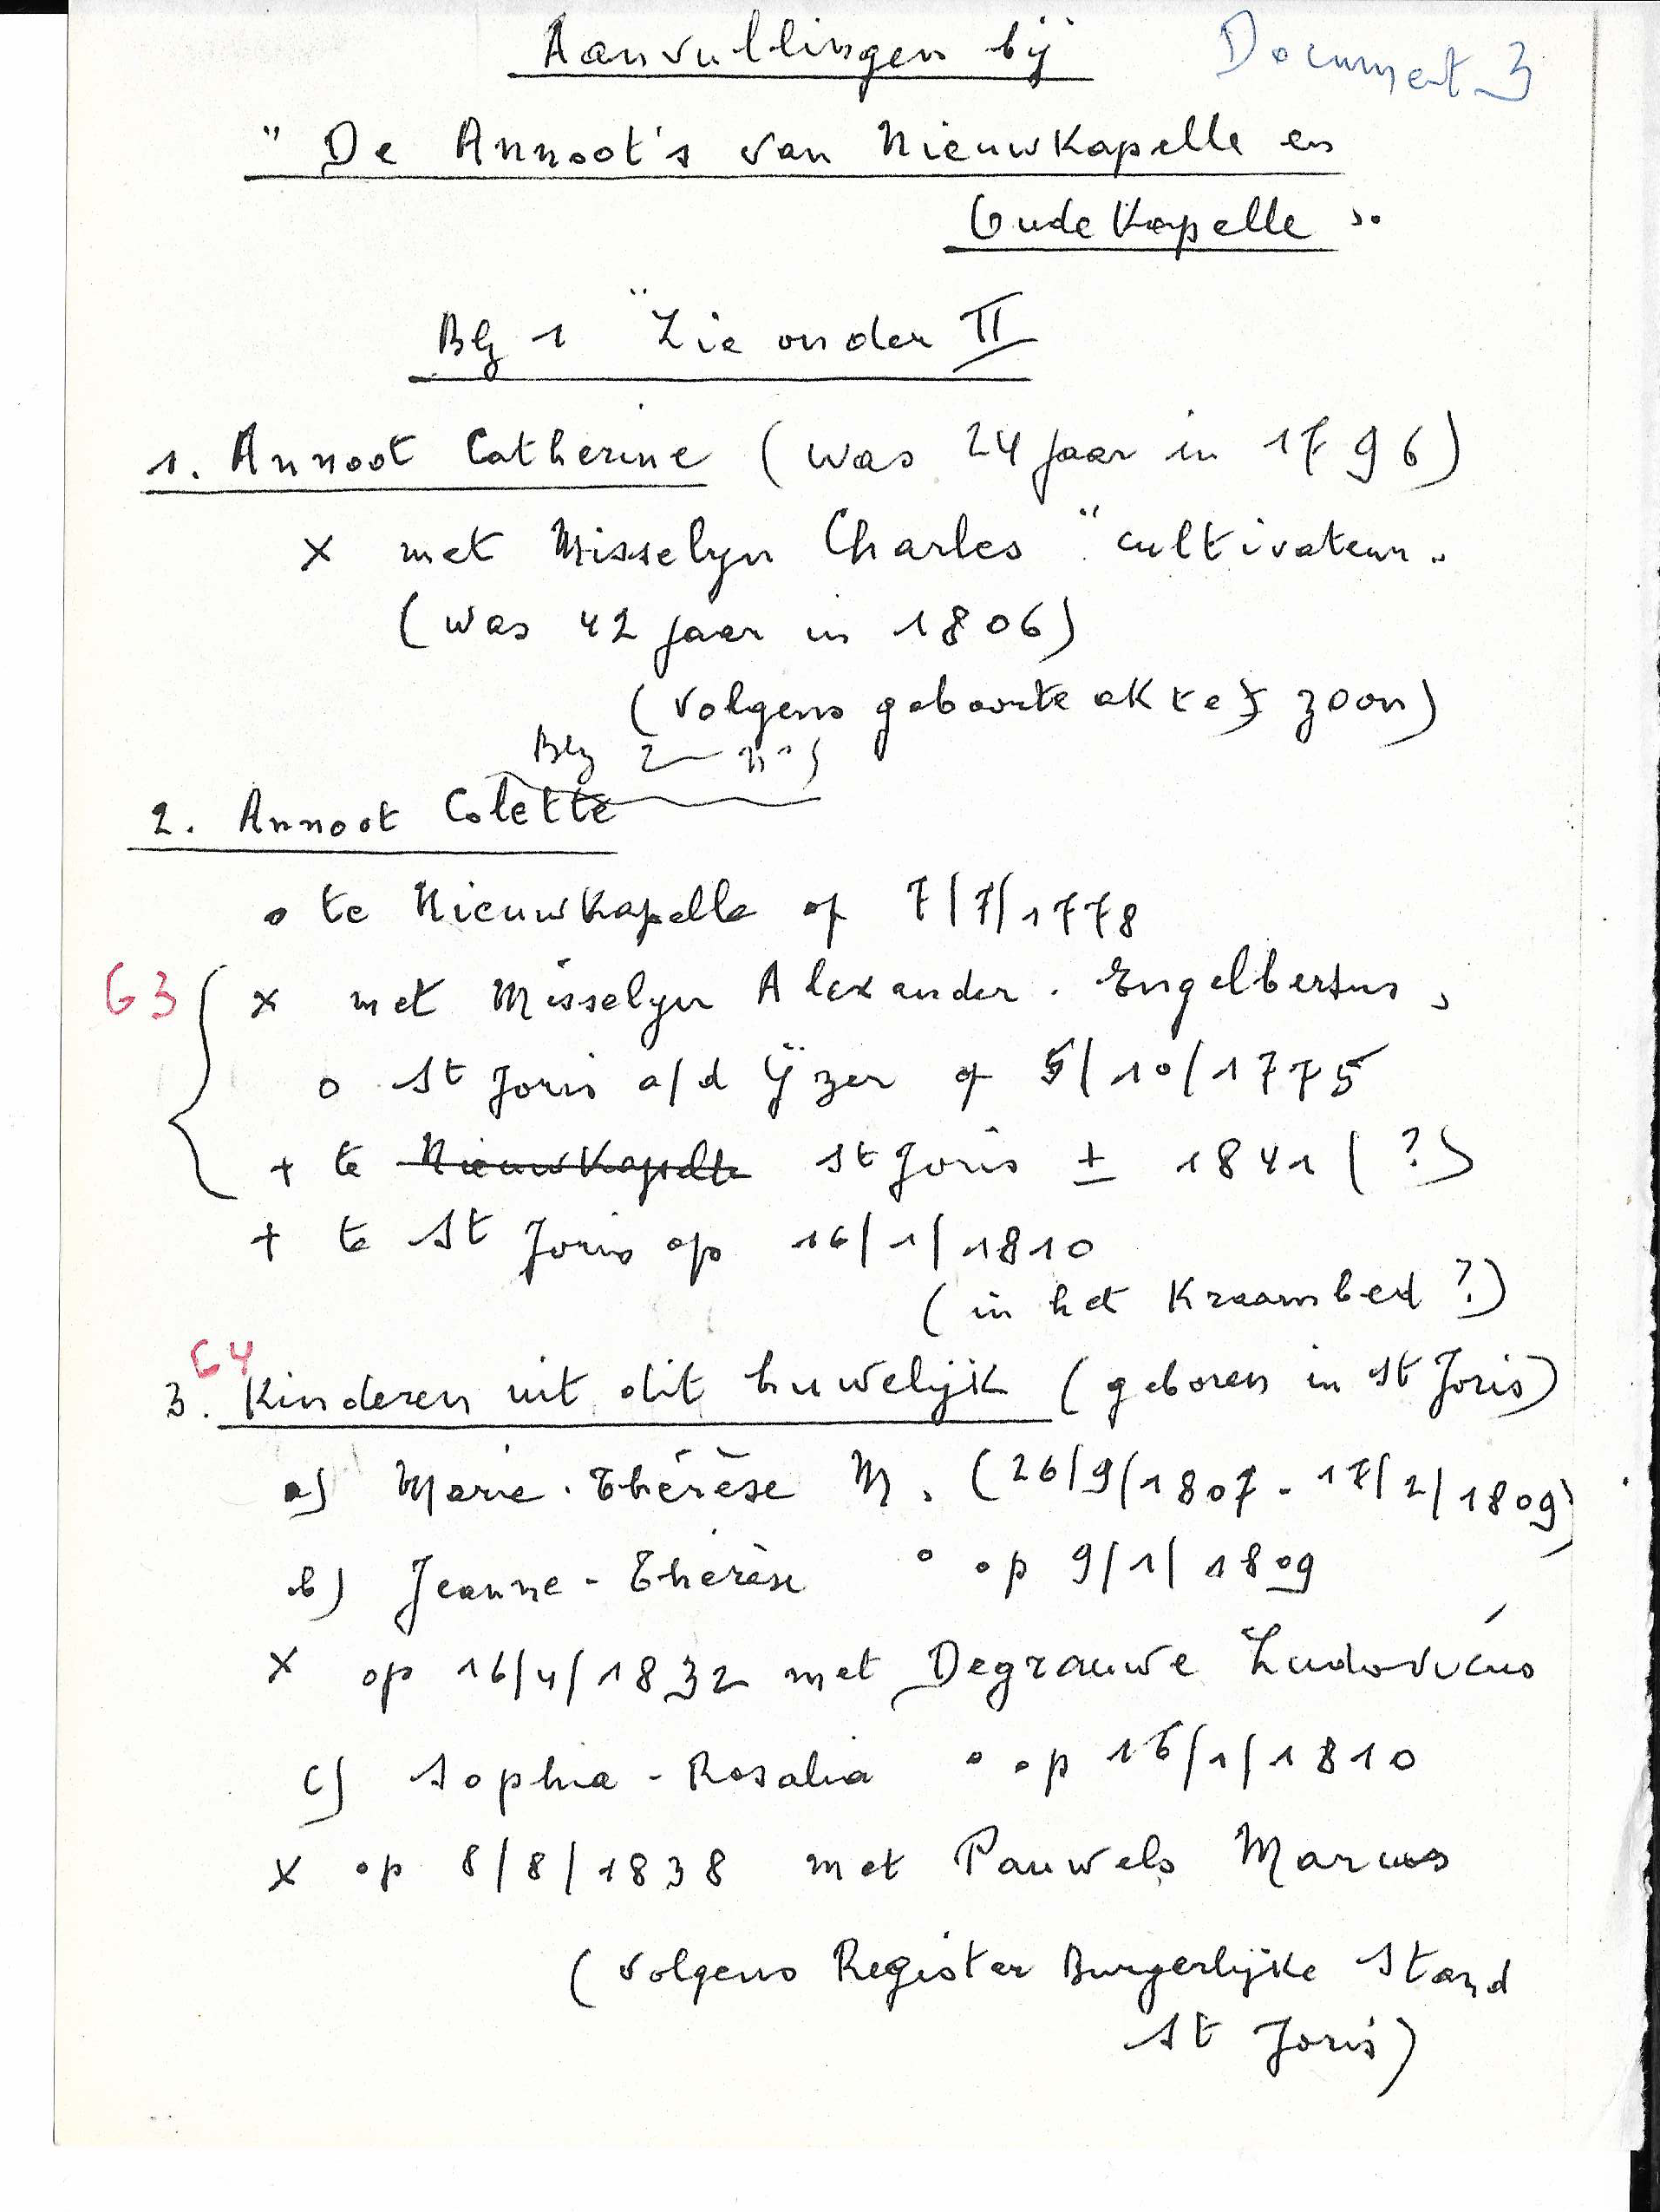 Aanvullingen bij
Document 3
" De Annoot's van Nieuwkapelle en
Oudekapelle "
Blz 1 "Zie onder II
1. Annoot Catherine (was 24 jaar in 1796)
x met Misselyn Charles "cultivateur"
(was 42 jaar in 1806)
(volgens geboorte akte zoon)
Blz 2
2. Annoot Colette
° te Nieuwkapelle op 7/7/1778
G3 { x met Misselyn Alexander - Engelbertus,
° St Joris a/d Ijzer op 5/10/1775
+ te Nieuwkapelle St Joris ± 1841 (?)
+ te St Joris op 16/1/1810
(in het Kraambed ?)
G4
3. Kinderen uit dit huwelijk (geboren in St Joris)
a) Marie-Thérèse M. (26/9/1807 - 17/2/1809)
b) Jeanne-Thérèse ° op 9/1/1809
x op 16/4/1832 met Degrauwe Ludovicus
c) Sophia-Rosalia ° op 16/1/1810
x op 8/8/1838 met Pauwels Marcus
(volgens Register Burgerlijke Stand
St Joris)